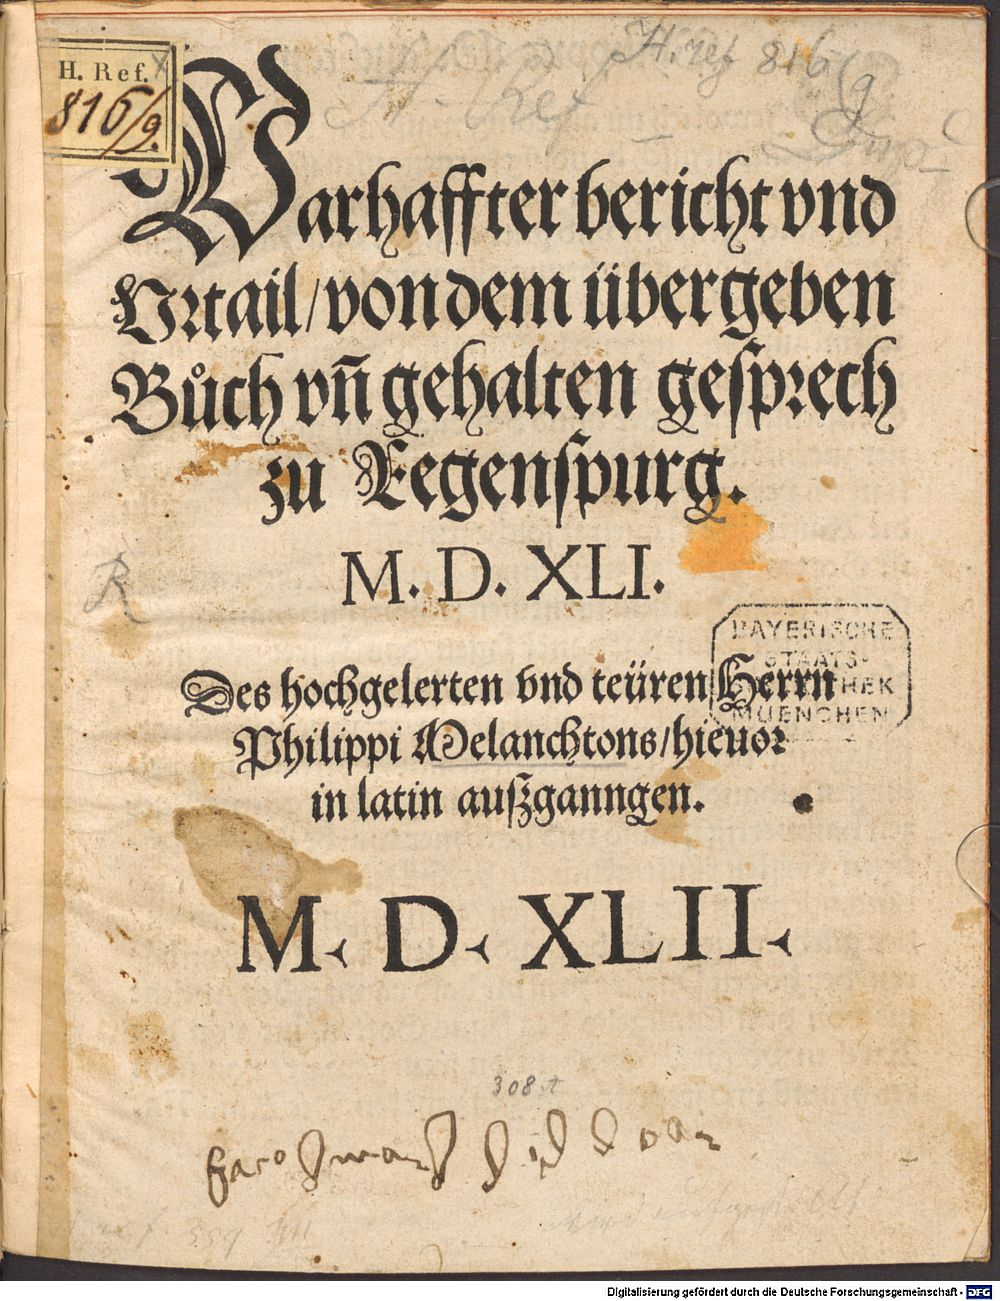 H. Ref.
816/9.
H. ref 816/9
H. Ref
Warhaffter bericht vnd
Vrtail/ von dem übergeben
Bůch vñ gehalten gesprech
zu Regenspurg.
M. D. XLI.
R
BAYERISCHE
STAATS-
MUENCHEN
Des hochgelerten vnd teüren Herrn
Philippi Melanchtons/ hieuor
in latin außganngen.
M. D. XLII.
308 t
Digitalisierung gefördert durch die Deutsche Forschungsgemeinschaft - DFG